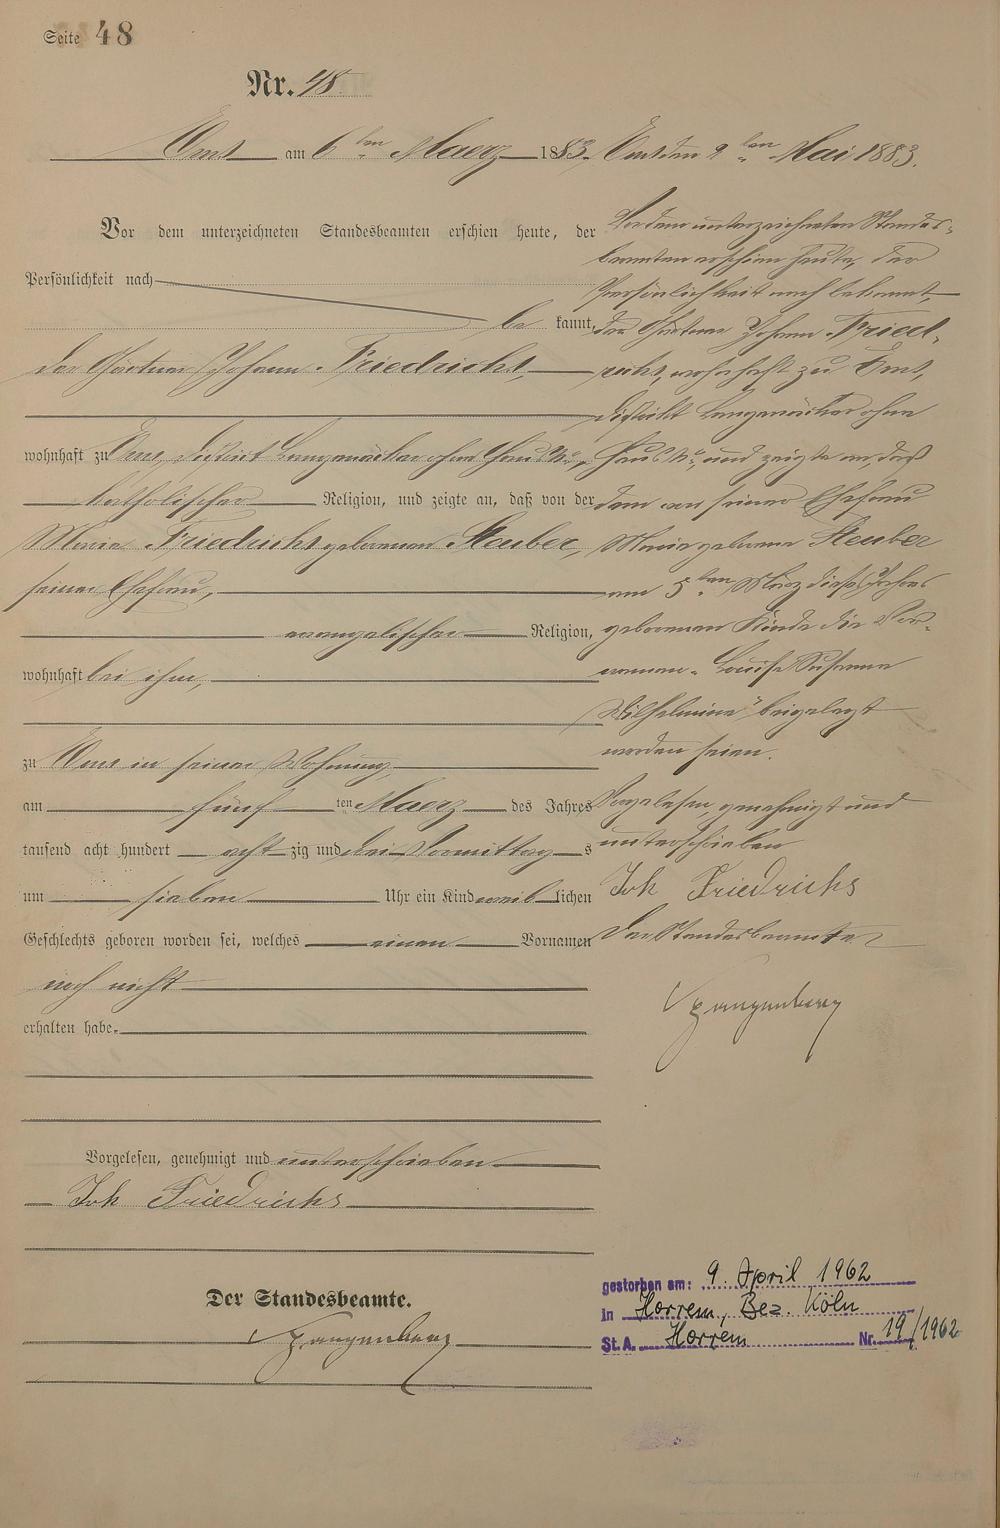 Seite 48
Nr. 48
Ems am 6ten Maerz 1883.
Vor dem unterzeichneten Standesbeamten erschien heute, der
Persönlichkeit nach
be kannt,
der Gärtner Johann Friedrichs,
wohnhaft zu Ems, District Langenäcker ohne Haus No.,
katholischer Religion, und zeigte an, daß von der
Maria Friedrichs geborenen Steuber,
seiner Ehefrau,
evangelischer Religion,
wohnhaft bei ihm,
zu Ems in seiner Wohnung,
am fünf ten Maerz des Jahres
tausend acht hundert acht zig und drei Vormittag s
um sieben Uhr ein Kind weib lichen
Geschlechts geboren worden sei, welches einen Vornamen
noch nicht
erhalten habe.
Vorgelesen, genehmigt und unterschrieben
Joh Friedrichs
Der Standesbeamte.
Ems den 2ten Mai 1883.
Vor dem unterzeichneten Standes-
beamten erschien heute, der
Persönlichkeit nach bekannt,
der Gärtner Johann Fried-
richs, wohnhaft zu Ems,
District Langenäcker ohne
Haus No. und zeigte an, daß
dem von seiner Ehefrau
Maria geborene Steuber
am 5ten März dieses Jahres
geborenen Kinde die Vor-
namen "Louise Susanna
Wilhelmine" beigelegt
worden seien.
Vorgelesen, genehmigt und
unterschrieben
Joh Friedrichs
Der Standesbeamte
gestorben am: 9. April 1962
in Horrem, Bez. Köln
St.A. Horrem Nr. 19/1962